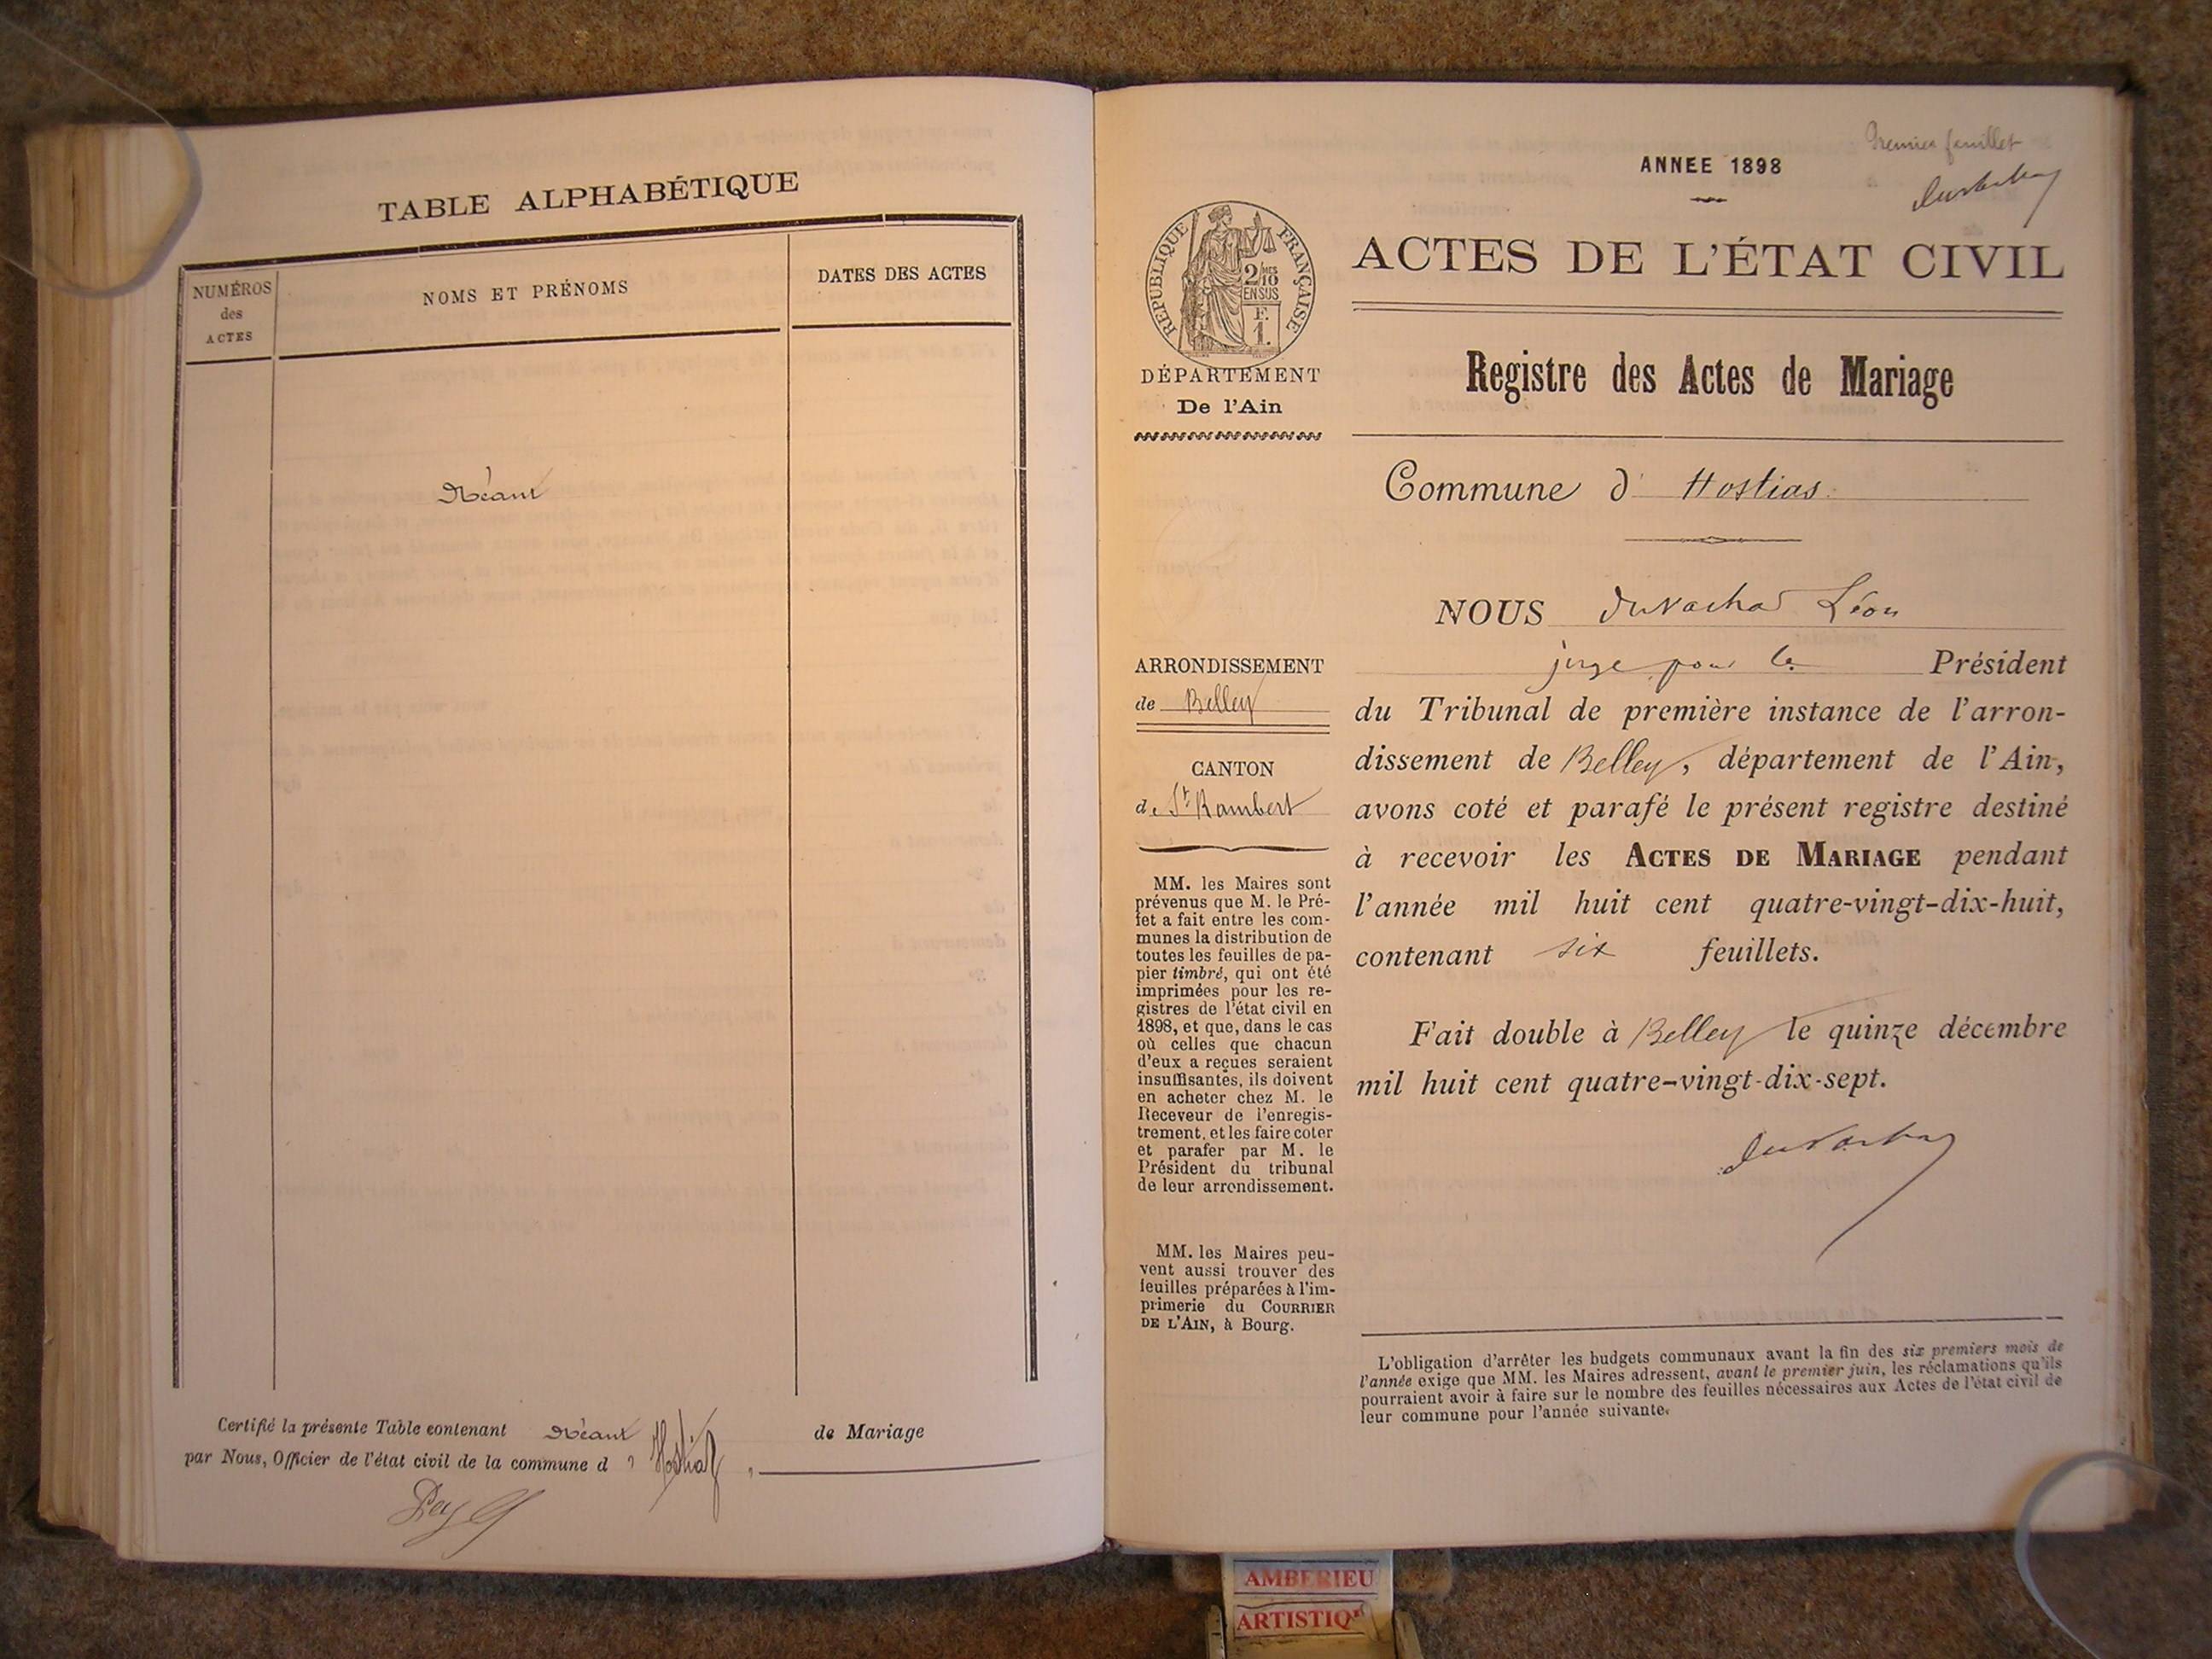 TABLE ALPHABÉTIQUE
NUMÉROS
des
ACTES
NOMS ET PRÉNOMS
DATES DES ACTES
Néant
Certifié la présente Table contenant Néant de Mariage
par Nous, Officier de l'état civil de la commune d' Hostiaz,
Premier feuillet
ANNEE 1898
REPUBLIQUE FRANÇAISE
2/10
MES
EN SUS
F.
1.
ACTES DE L'ÉTAT CIVIL
DÉPARTEMENT
De l'Ain
Registre des Actes de Mariage
Commune d' Hostias
ARRONDISSEMENT
de Belley
CANTON
de St Rambert
MM. les Maires sont
prévenus que M. le Pré-
fet a fait entre les com-
munes la distribution de
toutes les feuilles de pa-
pier timbré, qui ont été
imprimées pour les re-
gistres de l'état civil en
1898, et que, dans le cas
où celles que chacun
d'eux a reçues seraient
insuffisantes, ils doivent
en acheter chez M. le
Receveur de l'enregis-
trement, et les faire coter
et parafer par M. le
Président du tribunal
de leur arrondissement.
MM. les Maires peu-
vent aussi trouver des
feuilles préparées à l'im-
primerie du COURRIER
DE L'AIN, à Bourg.
NOUS Léon
juge pour le Président
du Tribunal de première instance de l'arron-
dissement de Belley, département de l'Ain,
avons coté et parafé le présent registre destiné
à recevoir les ACTES DE MARIAGE pendant
l'année mil huit cent quatre-vingt-dix-huit,
contenant six feuillets.
Fait double à Belley le quinze décembre
mil huit cent quatre-vingt-dix-sept.
L'obligation d'arrêter les budgets communaux avant la fin des six premiers mois de
l'année exige que MM. les Maires adressent, avant le premier juin, les réclamations qu'ils
pourraient avoir à faire sur le nombre des feuilles nécessaires aux Actes de l'état civil de
leur commune pour l'année suivante.
AMBERIEU
ARTISTIQ